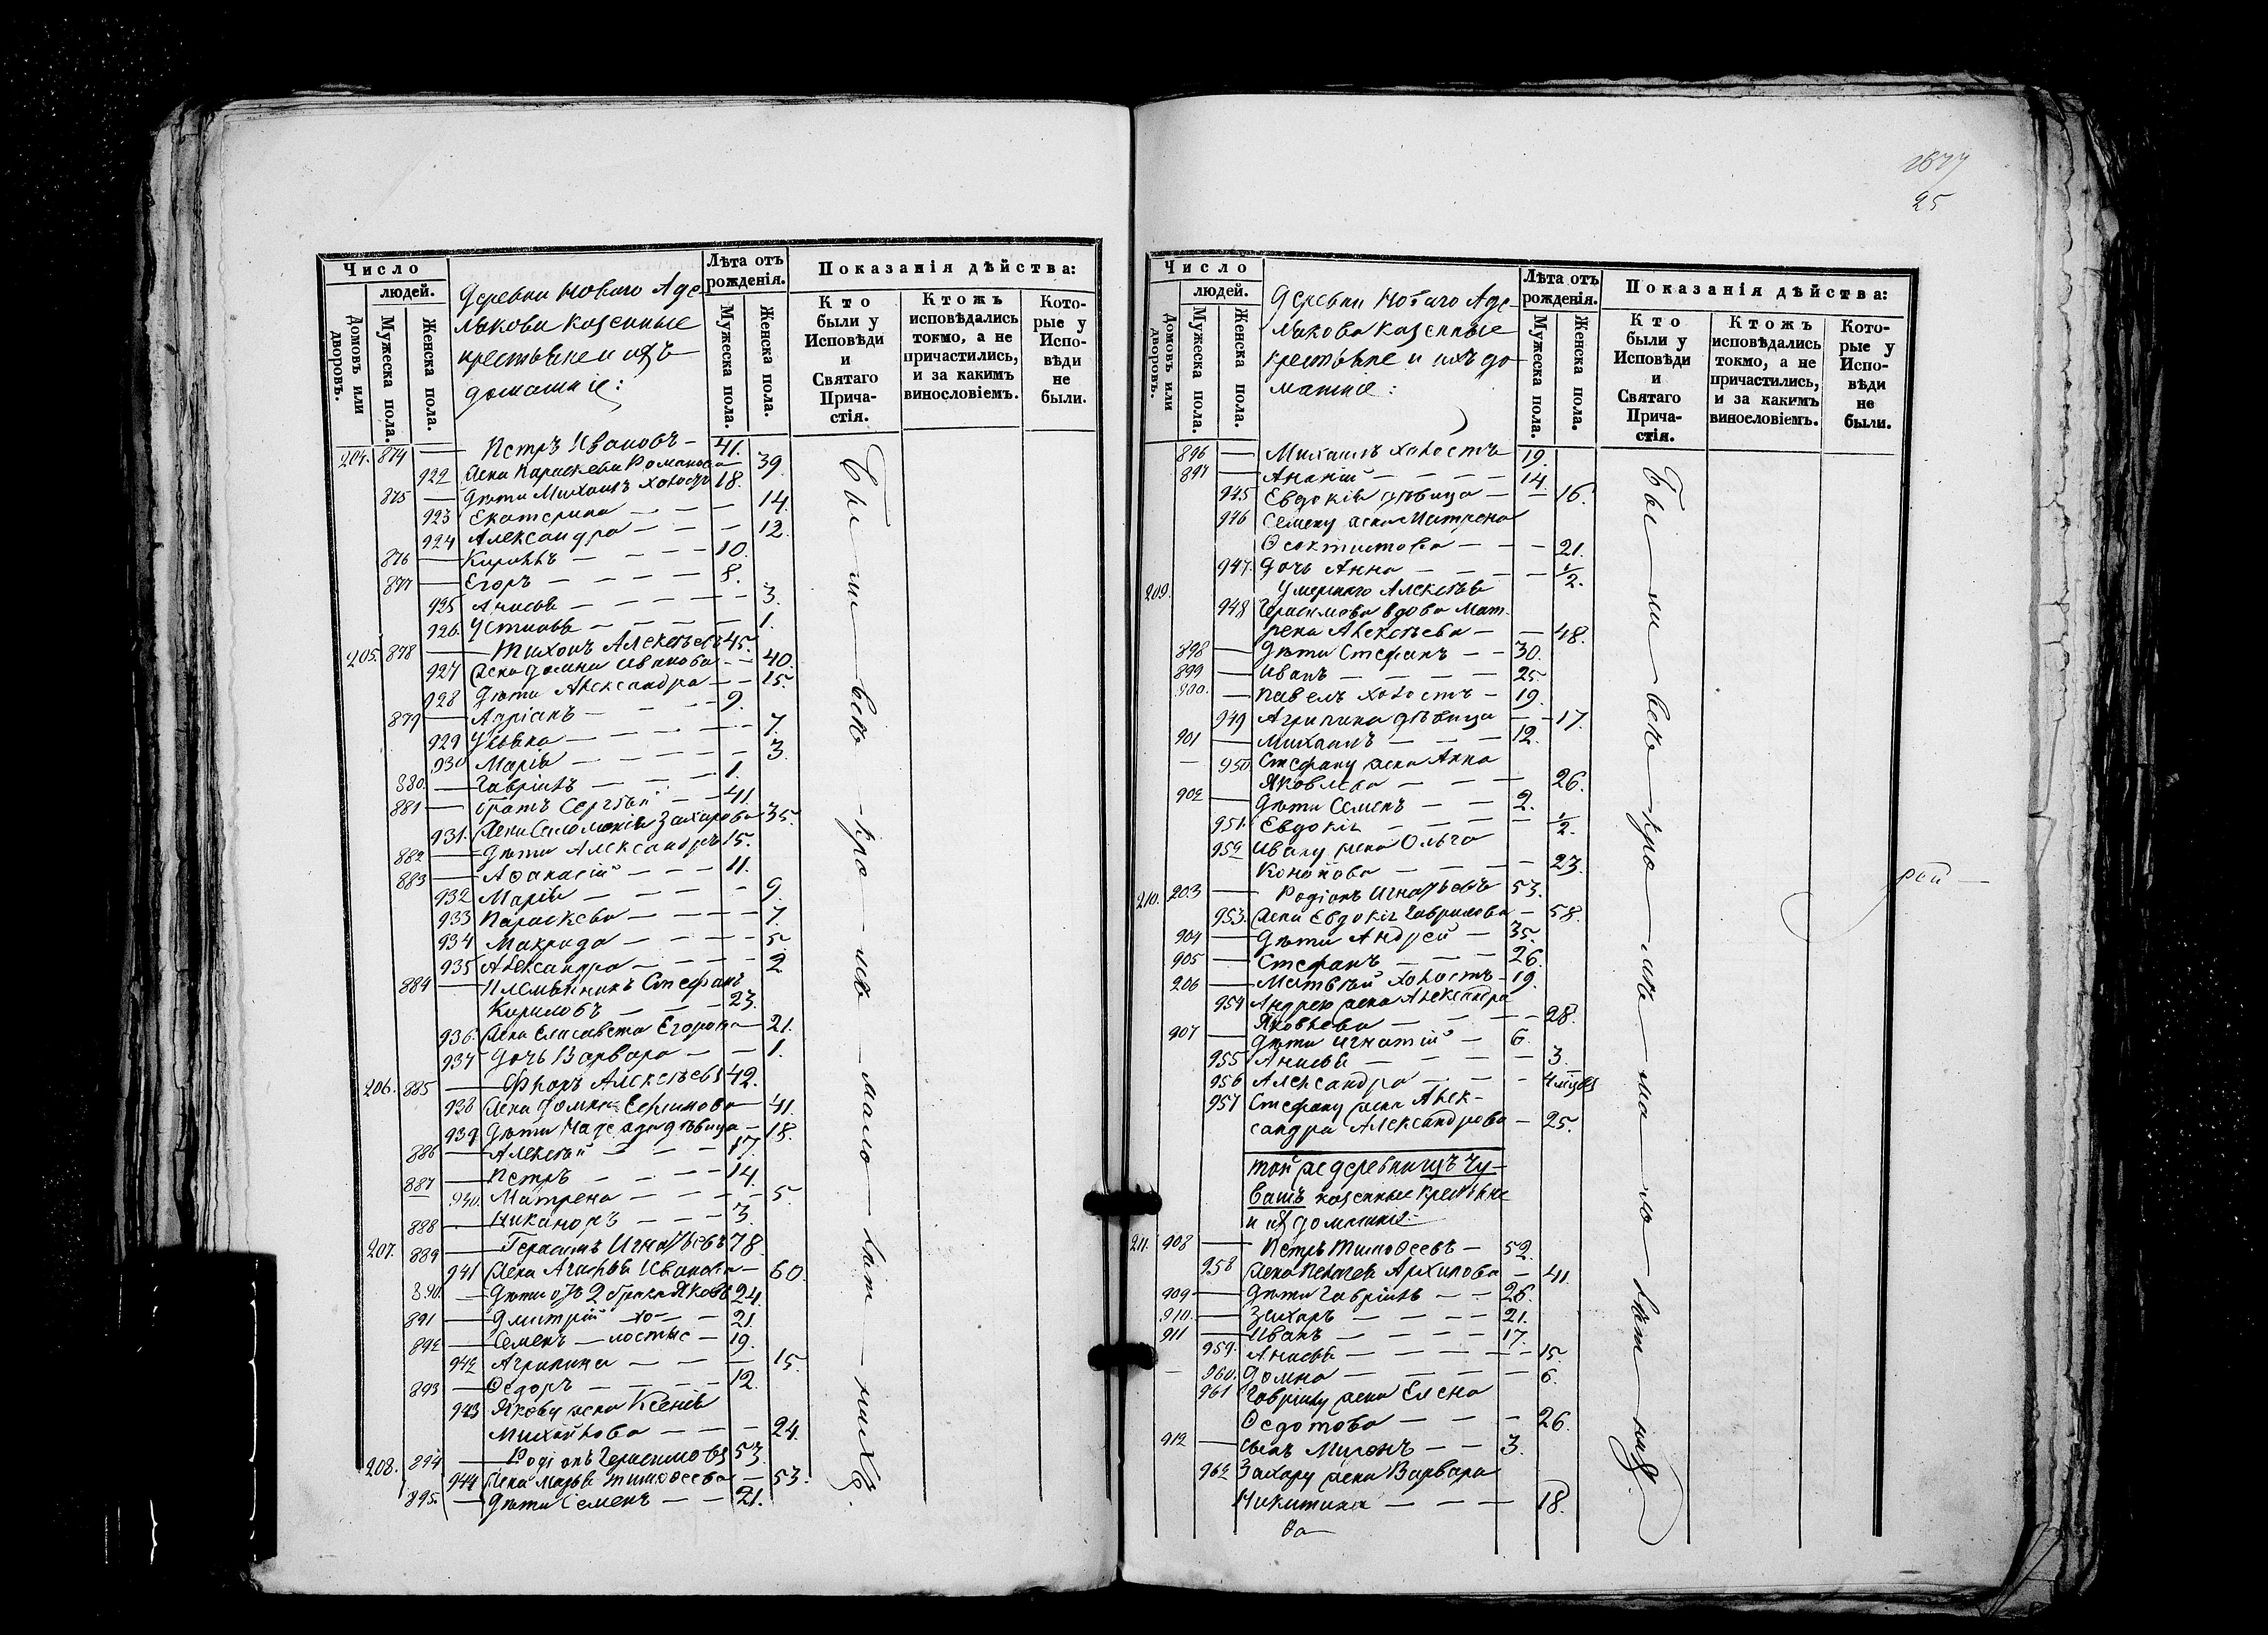 Число
людей.
Домовъ или дворовъ.
Мужеска пола.
Женска пола.
Деревни Новаго Аде
лякова казенные
крестьяне и ихъ
домашніе:
Лѣта отъ
рожденія.
Мужеска пола.
Женска пола.
Показанія дѣйства:
Кто
были у
Исповѣди
и
Святаго
Прича-
стія.
Ктожъ
исповѣдались
токмо, а не
причастились,
и за какимъ
винословіемъ.
Кото-
рые у
Испо-
вѣди
не
были.
204. 874 — Петръ Ивановъ — 41.
922 Жена Параскева Романова — 39.
875 — Дѣти Михаилъ холостъ 18.
923 Екатерина — — — 14.
924 Александра — — — 12.
876 — Кирилъ — — — 10.
877 — Егоръ — — — 8.
925 Анисья — — — 3.
926. Устинья — — — 1.
205. 878 — Тихонъ Алексѣевъ 45.
927 Жена Домна Иванова — 40.
928 Дѣти Александра — — 15.
879 — Адріанъ — — — 9.
929 Ульяна — — — 7.
930 Марія — — — 3.
880. — Гавріилъ — — — 1.
881 — братъ Сергѣй — — 41.
931. Жена Соломонія Захарова 35.
882 — Дѣти Александръ 15.
883 — Аѳанасій — — — 11.
932 Марія — — — 9.
933 Параскева — — — 7.
934 Макрида — — — 5.
935 Александра — — — 2
884 — Племянникъ Стефанъ
Кириловъ — — 23.
936. Жена Елисавета Егорова — 21.
937 Дочь Варвара — — 1.
206. 885 — Фролъ Алексѣевъ 42.
938 Жена Домна Ефимова — 41.
939 Дѣти Надежда дѣвица — 18.
886 — Алексѣй — — 17.
887 — Петръ — — — 14.
940. Матрена — — — 5.
888 — Никаноръ — — — 3.
207. 889 — Герасимъ Игнатьевъ 78.
941 Жена Агафья Иванова — 60.
890. — Дѣти отъ 2 брака Яковъ 24.
891 — Дмитрій — хо — 21.
892 — Семенъ — лостые — 19.
942 Агрипина — — — 15.
893 — Ѳедоръ — — — 12.
943 Якову жена Ксенія
Михайлова — — — 24.
208. 894 — Родіонъ Герасимовъ 53.
944 Жена Марья Тимоѳеева — 53.
895. — Дѣти Семенъ — — 21.
Бы — ли — всѣ — кро — мѣ — мало — лѣт — нихъ.
2677
25
Число
людей.
Домовъ или дворовъ.
Мужеска пола.
Женска пола.
Деревни Новаго Аде-
лякова казенные
крестьяне и ихъ до
машніе:
Лѣта отъ
рожденія.
Мужеска пола.
Женска пола.
Показанія дѣйства:
Кто
были у
Исповѣди
и
Святаго
Прича-
стія.
Ктожъ
исповѣдались
токмо, а не
причастились,
и за какимъ
винословіемъ.
Кото-
рые у
Испо-
вѣди
не
были.
896 — Михаилъ холостъ 19.
897 — Ананій — — — 14.
945 Евдокія дѣвица — — 16.
946 Семену жена Матрена
Ѳеоктистова — — — 21.
947. Дочь Анна — — — 1/2.
209. Умершаго Алексѣя
948 Герасимова вдова Мат-
рена Алексѣева — — 48.
898 — Дѣти Стефанъ — — 30.
899 — Иванъ — — — 25.
900. — Павелъ холостъ — 19.
949 Агрипина дѣвица — — 17.
901 — Михаилъ — — — 12.
950 Стефану жена Анна
Яковлева — — — 26.
902 — Дѣти Семенъ — — 2.
951. Евдокія — — — 1/2.
952 Ивану жена Ольга
Кононова — — — 23.
210. 903 — Родіонъ Игнатьевъ 53.
953. Жена Евдокія Гаврилова — 58.
904 — Дѣти Андрей — 35.
905 — Стефанъ — — — 26.
906 — Матвѣй холостъ — 19.
954 Андрею жена Александра
Яковлева — — — 28.
907 — Дѣти Игнатій — 6.
955 Анисья — — — 3.
956 Александра — — — 4 мѣс
957 Стефану жена Алек-
сандра Александрова — 25.
той же деревни изъ Чу-
вашъ казенные крестьяне
и ихъ домашніе:
211. 908 — Петръ Тимоѳеевъ — 52.
958 Жена Пелагея Архипова — 41.
909 — Дѣти Гавріилъ — — 26.
910. — Захаръ — — — 21.
911 — Иванъ — — — 17.
959. Анисья — — — 15.
960. Домна — — — 6.
961 Гавріилу жена Елена
Ѳедотова — — — 26.
912 — сынъ Миронъ — — 3.
962 Захару жена Варвара
Никитина — — — 18.
Бы — ли — всѣ — кро — мѣ — ма — ло — лѣт — нихъ.
рей —